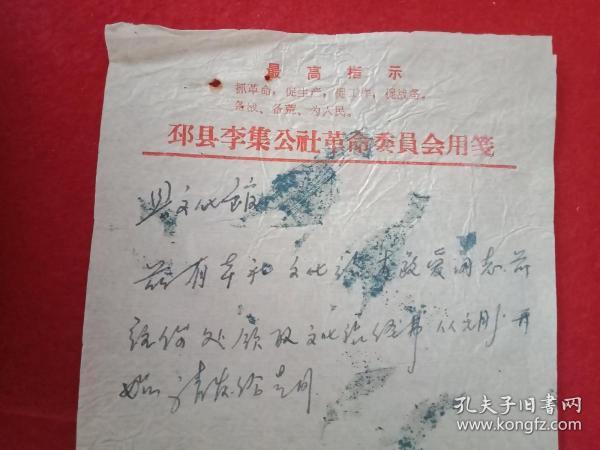 最高指示
抓革命，促生产，促工作，促战备。
备战、备荒、为人民。
邳县李集公社革命委员会用笺
县文化馆
兹有本社文化站李政爱同志前
往你处领取文化站经费从元月开
始 请发给是荷
孔夫子旧书网
www.kongfz.com